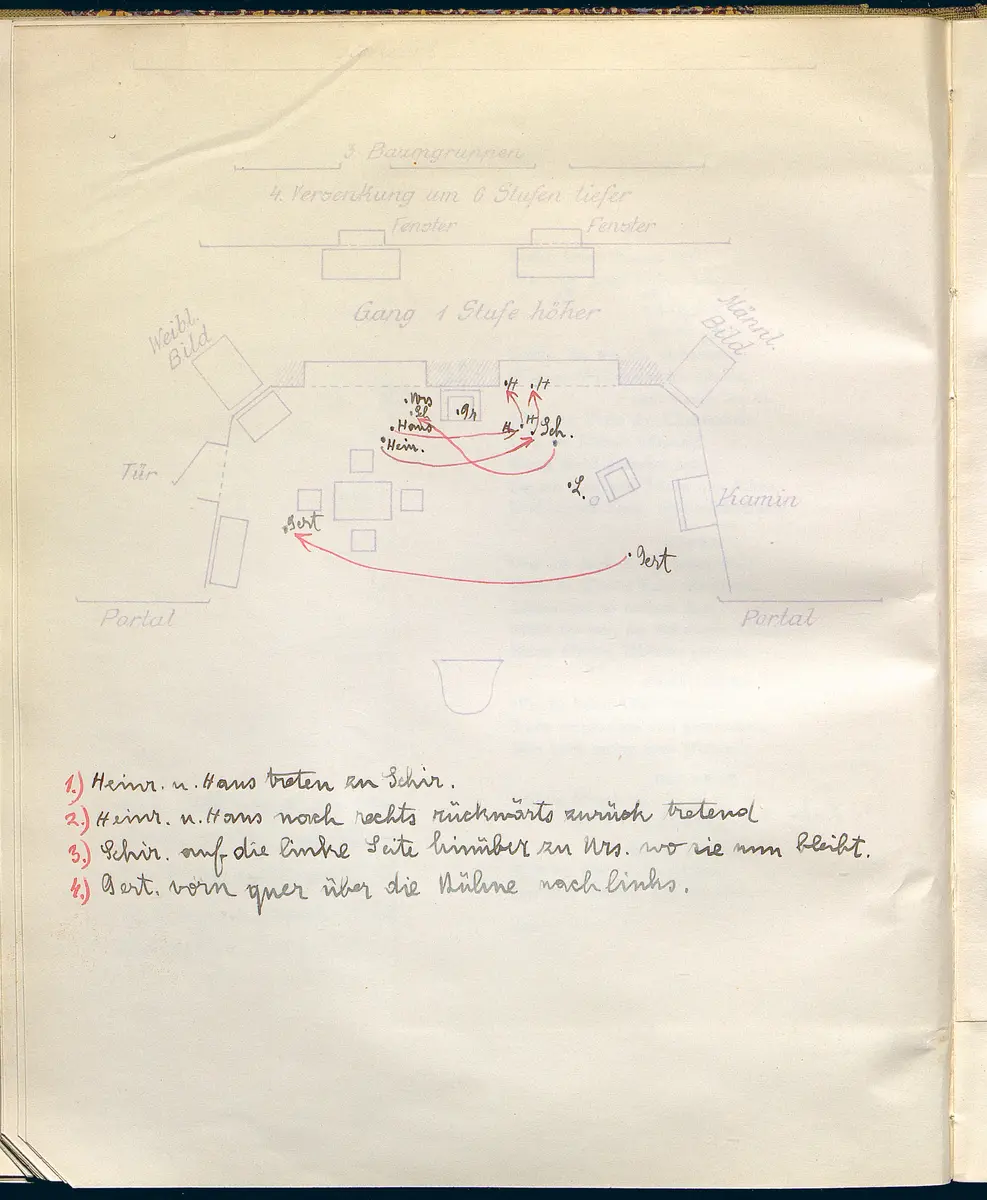 3 Baumgruppen
4. Versenkung um 6 Stufen tiefer
Fenster Fenster
Gang 1 Stufe höher
Weibl. Bild
Männl. Bild
.H .H
.Urs
.Sch
.Gr
.Haus
H. H
Sch.
.Hein.
Tür
.L.
Kamin
.Gert
.Gert
Portal Portal
1.) Heinr. u. Haus treten zu Schir.
2.) Heinr. u. Haus nach rechts rückwärts zurück tretend
3.) Schir. auf die linke Seite hinüber zu Urs. wo sie nun bleibt.
4.) Gert. vorn quer über die Bühne nach links.